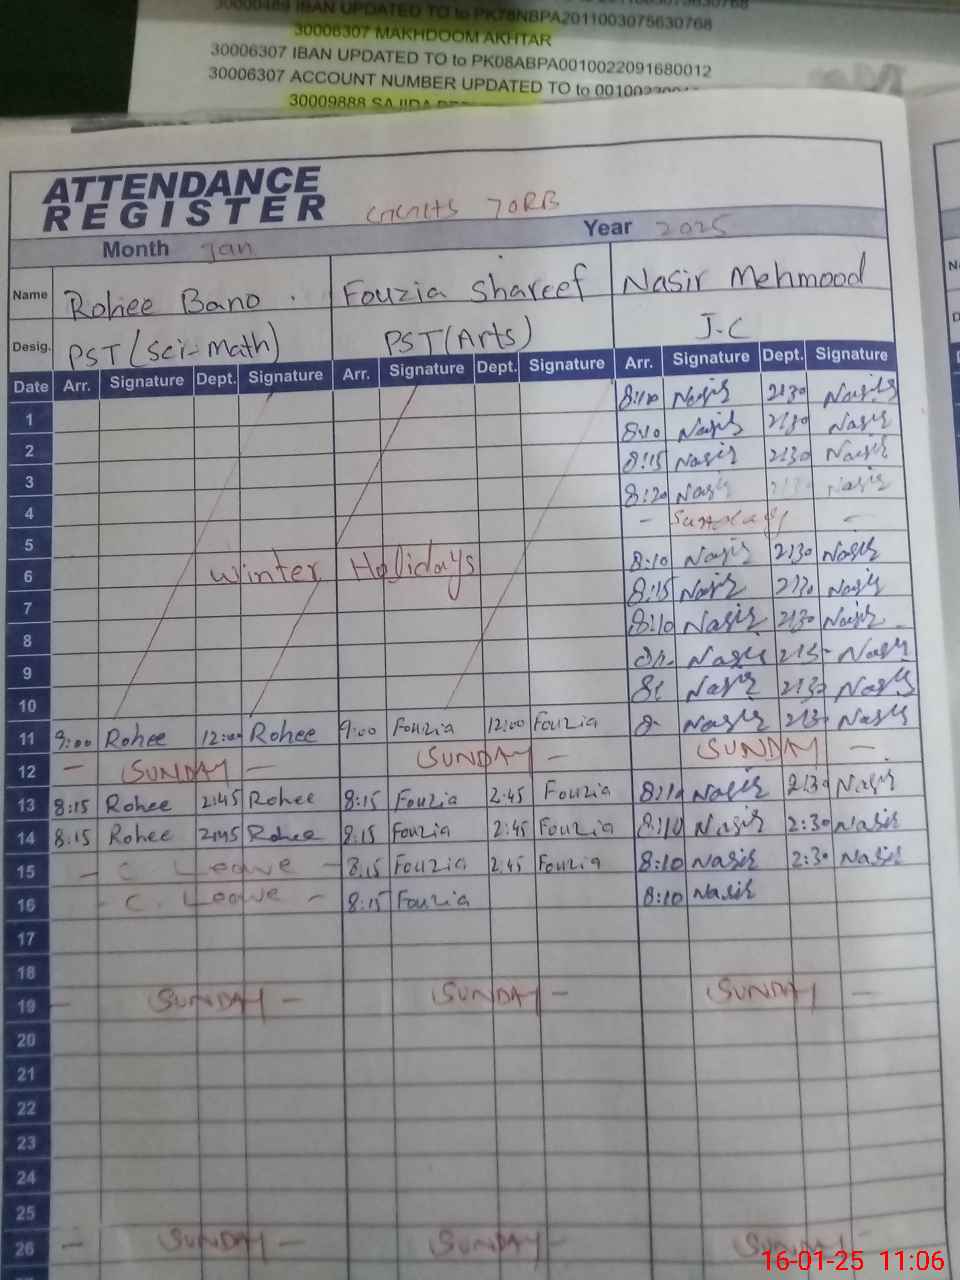 30006307 MAKHDOOM AKHTAR
30006307 IBAN UPDATED TO to PK08ABPA0010022091680012
30006307 ACCOUNT NUMBER UPDATED TO to
30009888 SAJIDA
ATTENDANCE
REGISTER 70RB
Month Jan Year 2025
Name Rohee Bano Fouzia Shareef Nasir Mehmood
Desig. PST (Sci-Math) PST (Arts) J.C
Date Arr. Signature Dept. Signature Arr. Signature Dept. Signature Arr. Signature Dept. Signature
1 8:10 Nasir 2:30 Nasir
2 8:10 Nasir 2:30 Nasir
3 8:15 Nasir 2:30 Nasir
4 8:20 Nasir Nasir
5 - Sunday -
6 Winter Holidays 8:10 Nasir 2:30 Nasir
7 8:15 Nasir 2:30 Nasir
8 8:10 Nasir 2:30 Nasir
9 Nasir Nasir
10 Nasir 2:30 Nasir
11 9:00 Rohee 12:00 Rohee 9:00 Fouzia 12:00 Fouzia Nasir Nasir
12 - SUNDAY - SUNDAY - SUNDAY -
13 8:15 Rohee 2:45 Rohee 8:15 Fouzia 2:45 Fouzia 8:10 Nasir 2:30 Nasir
14 8:15 Rohee 2:45 Rohee 8:15 Fouzia 2:45 Fouzia 8:10 Nasir 2:30 Nasir
15 - C. Leave - 8:15 Fouzia 2:45 Fouzia 8:10 Nasir 2:30 Nasir
16 - C. Leave - 8:15 Fouzia 8:10 Nasir
17
18
19 - SUNDAY - SUNDAY - SUNDAY -
20
21
22
23
24
25
26 - SUNDAY - SUNDAY - SUNDAY
16-01-25 11:06